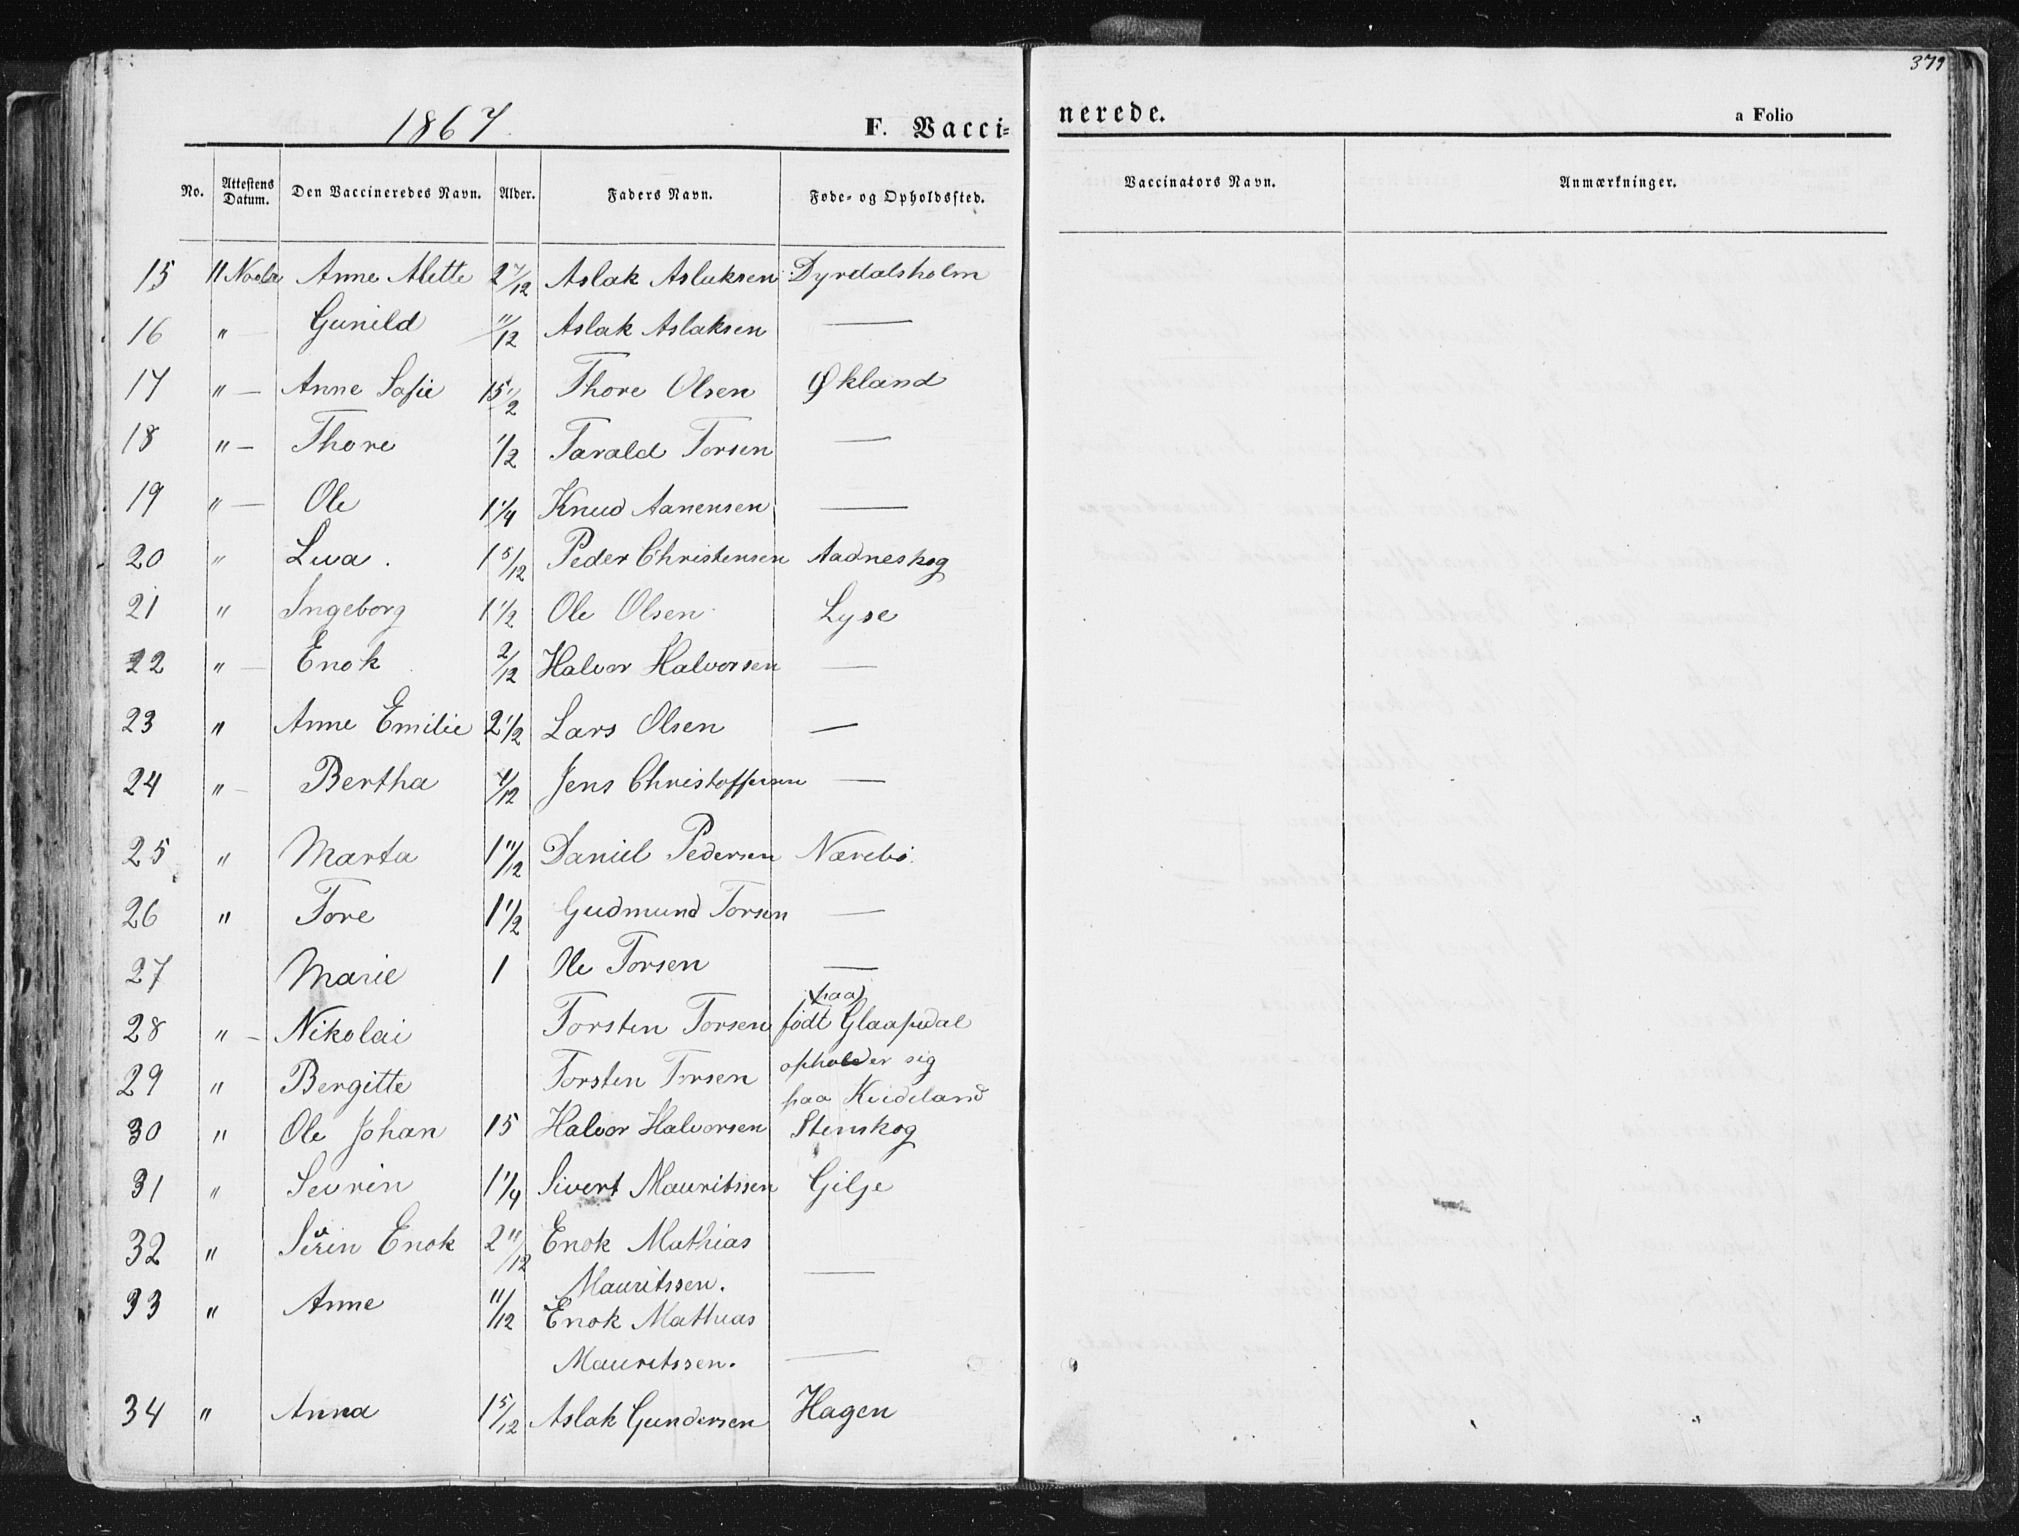 379
1867.
F. Vacci=
nerede.
a Folio
No. Attestens Datum. Den Vaccineredes Navn. Alder. Faders Navn. Føde- og Opholdssted.
Vaccinators Navn. Anmærkninger.
15 11 Novbr Anne Alette 2 7/12 Aslak Aslaksen Dyrdalsholm
16 " — Gunild 11/12 Aslak Aslaksen —
17 " — Anne Sofie 15 1/2 Thore Olsen Økland
18 " — Thore 1/2 Tarald Torsen —
19 " — Ole 1 1/4 Knud Aanensen —
20 " Liva. 1 5/12 Peder Christensen Aadneskog
21 " Ingeborg 1 1/2 Ole Olsen Lyse
22 " — Enok 2/12 Halvor Halvorsen —
23 " Anne Emilie 2 1/2 Lars Olsen —
24 " — Bertha /12 Jens Christoffersen —
25 " Marta 1 11/12 Daniel Pedersen Nærebø
26 " Tore 1 1/2 Gudmund Torsen —
27 Marie 1 Ole Torsen —
paa
28 " — Nikolai Torsten Torsen født Glaapedal
opholder sig
29 " Bergitte Torsten Torsen paa Kvideland
30 " Ole Johan 15 Halvor Halvorsen Stenskog
31 " Sevrin 1 1/4 Sivert Mauritssen Gilje
32 " Sevrin Enok 2 11/12 Enok Mathias
Mauritssen. —
33 " Anne 11/12 Enok Mathias
Mauritssen. —
34 " Anna 1 5/12 Aslak Gundersen Hagen